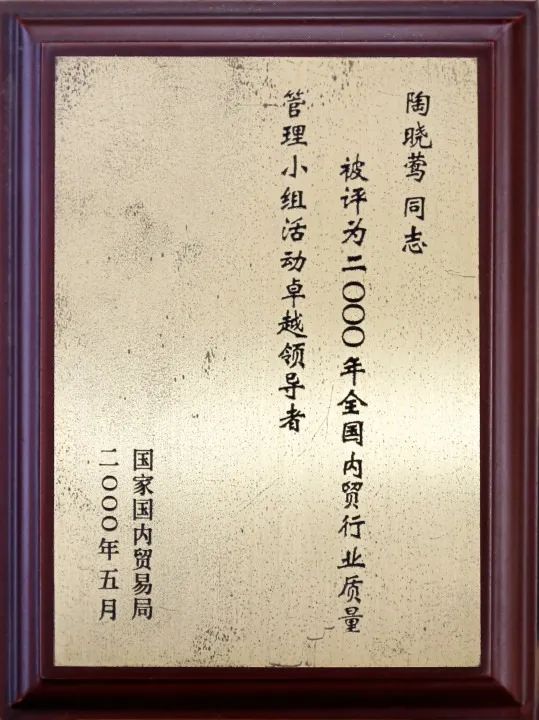 陶晓莺同志
被评为二〇〇〇年全国内贸行业质量
管理小组活动卓越领导者
国家国内贸易局
二〇〇〇年五月